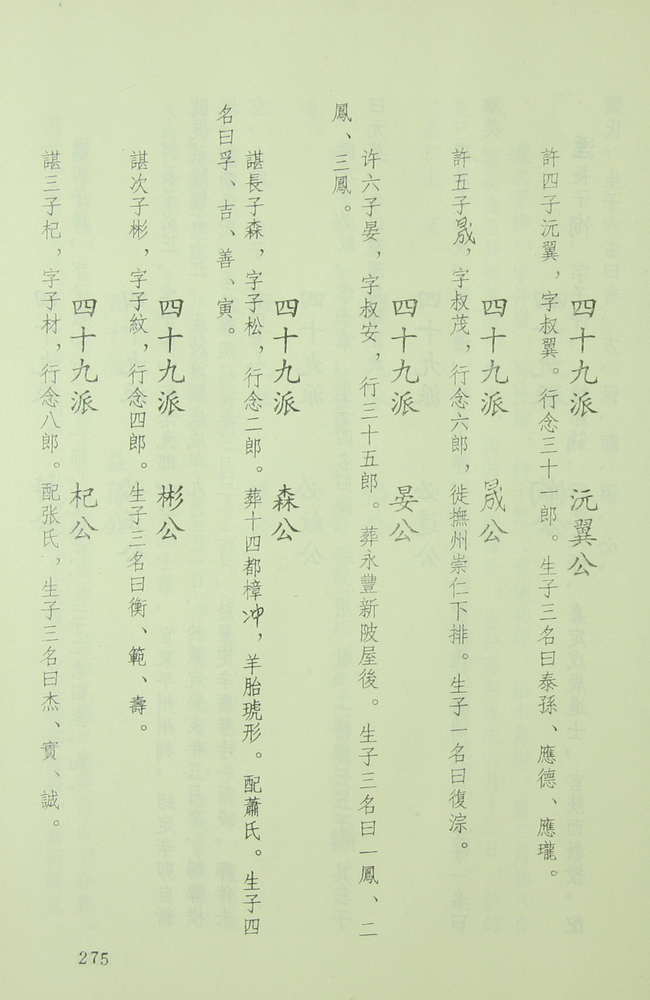 四十九派　沅翼公
許四子沅翼，字叔翼。行念三十一郎。生子三名曰泰孫、應德、應瓏。
四十九派　晟公
許五子晟，字叔茂，行念六郎，徙撫州崇仁下排。生子一名曰復淙。
四十九派　晏公
许六子晏，字叔安，行三十五郎。葬永豐新陂屋後。生子三名曰一鳳、二
鳳、三鳳。
四十九派　森公
諶長子森，字子松，行念二郎。葬十四都樟冲，羊胎琥形。配蕭氏。生子四
名曰孚、吉、善、寅。
四十九派　彬公
諶次子彬，字子紋，行念四郎。生子三名曰衡、範、壽。
四十九派　杞公
諶三子杞，字子材，行念八郎。配张氏，生子三名曰杰、實、誠。
275